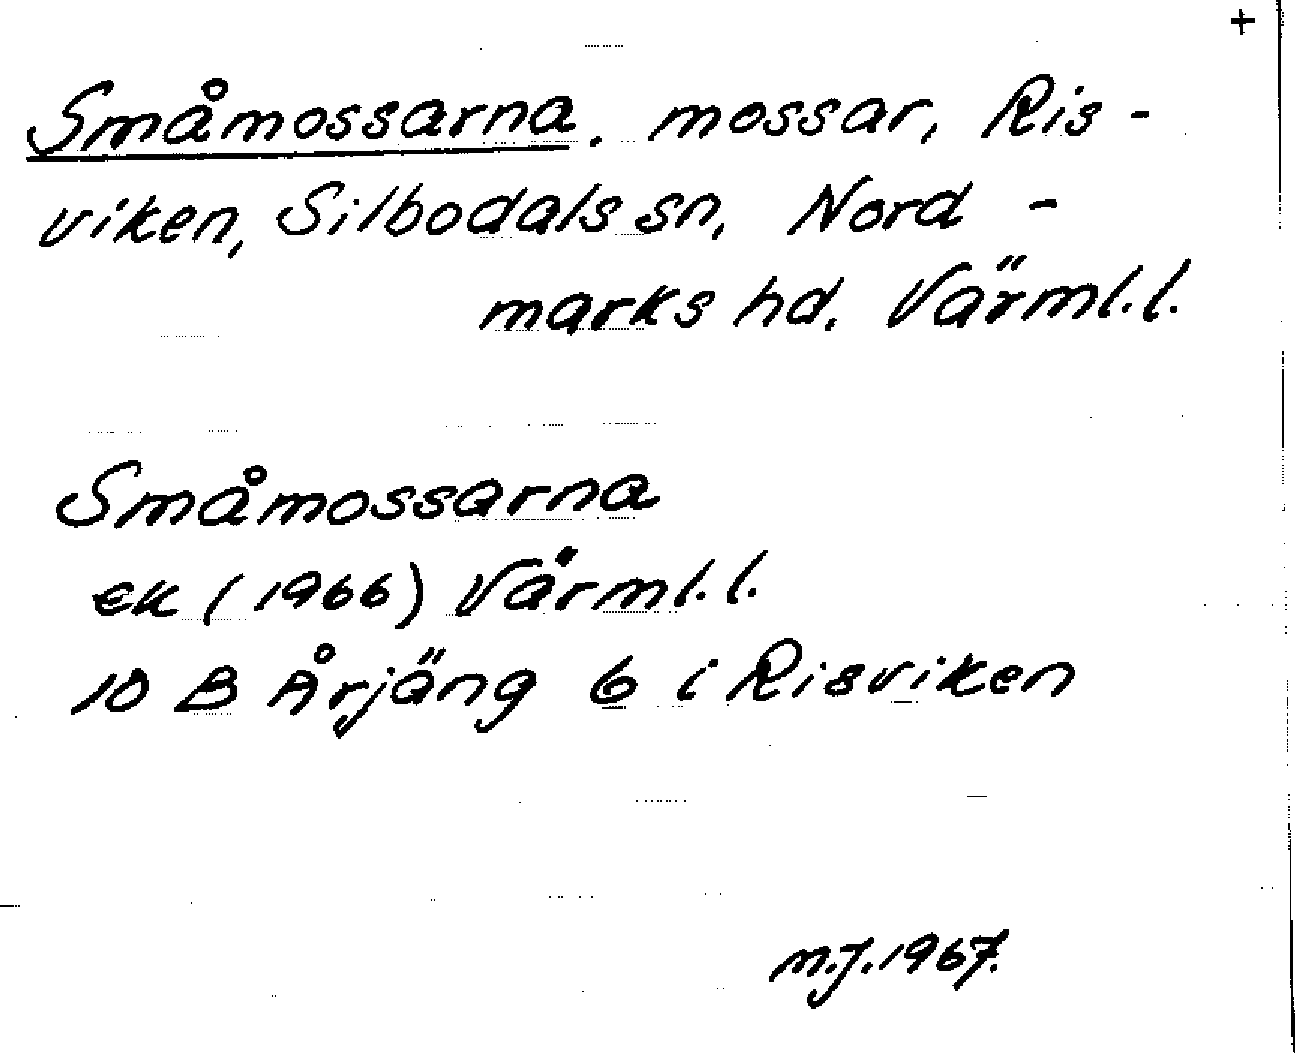 +
Småmossarna. mossar, Ris-
viken, Silbodals sn, Nord-
marks hd. Värml.l.
Småmossarna
ek (1966) Värml.l.
10 B Årjäng 6 i Risviken
M.J. 1967.